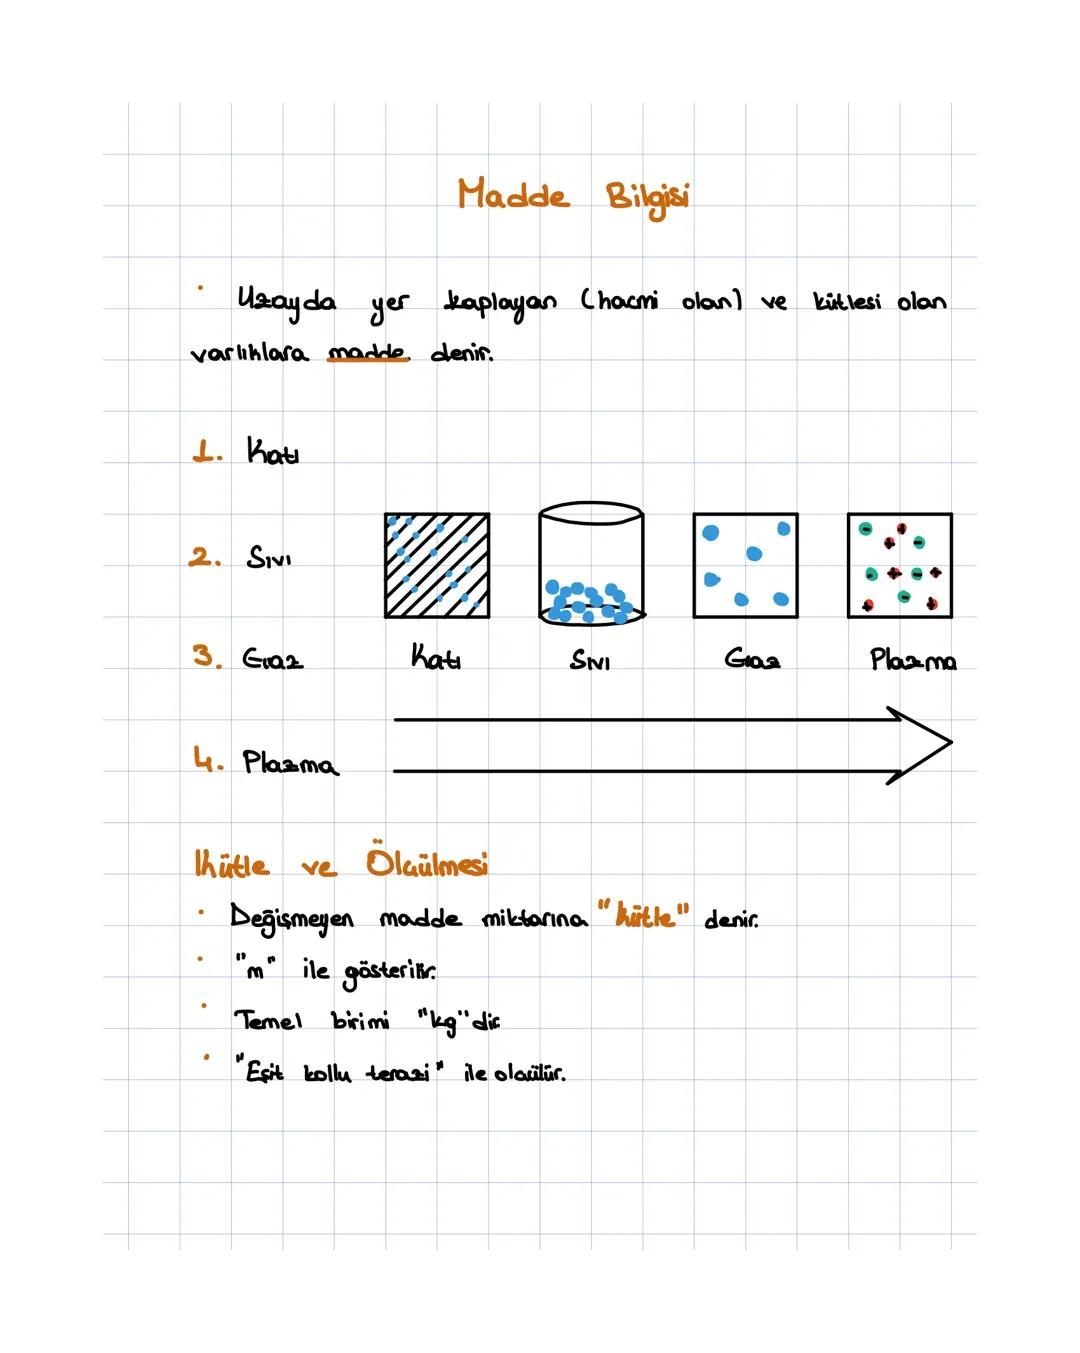 Madde Bilgisi
• Uzayda yer kaplayan (hacmi olan) ve kütlesi olan
varlıklara madde denir.
1. Katı
2. Sıvı
3. Gaz
4. Plazma
Katı Sıvı Gaz Plazma
Kütle ve Ölçülmesi
• Değişmeyen madde miktarına "kütle" denir.
• "m" ile gösterilir.
• Temel birimi "kg"dir
• "Eşit kollu terazi" ile ölçülür.